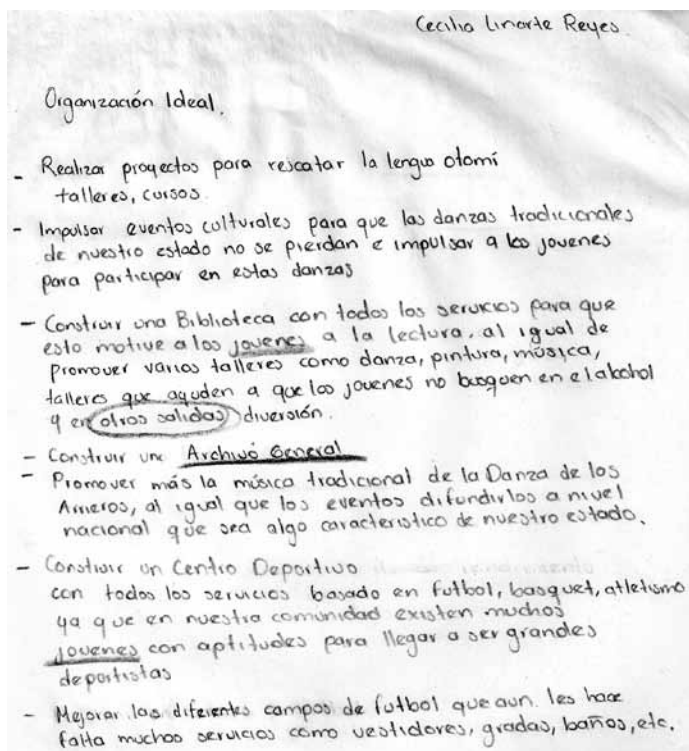 Cecilia Linarte Reyes.
Organización Ideal.
- Realizar proyectos para rescatar la lengua otomí
talleres, cursos.
- Impulsar eventos culturales para que las danzas tradicionales
de nuestro estado no se pierdan e impulsar a los jovenes
para participar en estas danzas
- Construir una Biblioteca con todos los servicios para que
esto motive a los jovenes a la lectura, al igual de
promover varios talleres como danza, pintura, música,
talleres que ayuden a que los jovenes no busquen en el alcohol
y en otras salidas diversión.
- Construir un Archivo General
- Promover más la música tradicional de la Danza de los
Arrieros, al igual que los eventos difundirlos a nivel
nacional que sea algo caracteristico de nuestro estado.
- Construir un Centro Deportivo
con todos los servicios basado en futbol, basquet, atletismo
ya que en nuestra comunidad existen muchos
jovenes con aptitudes para llegar a ser grandes
deportistas
- Mejorar las diferentes campos de futbol que aun les hace
falta muchos servicios como vestidores, gradas, baños, etc.